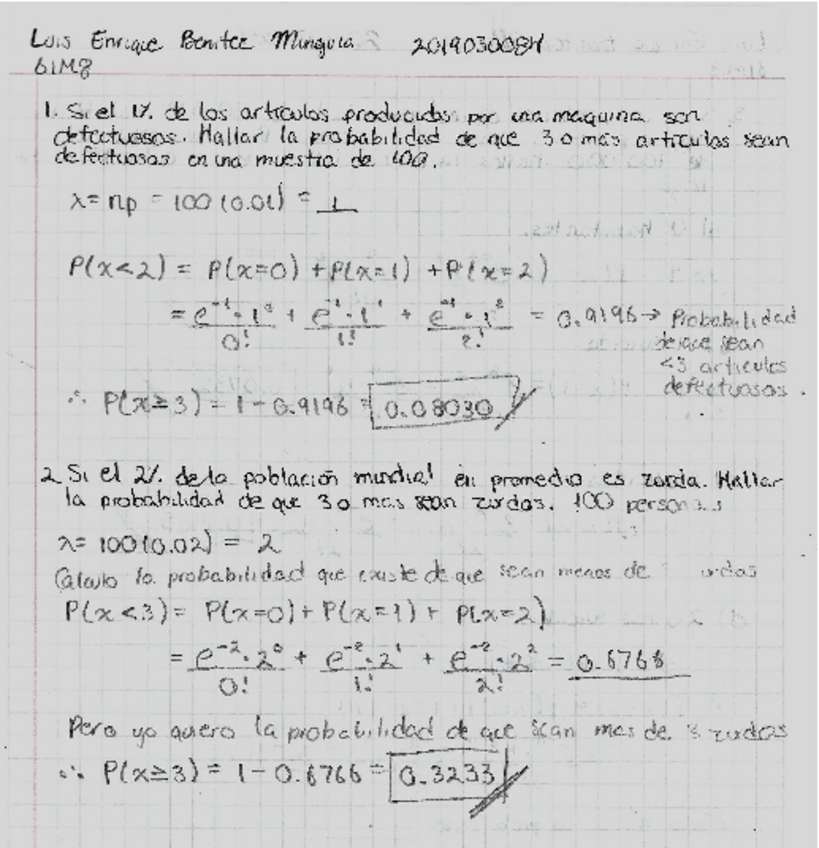 Luis Enrique Benitez Munguia 2019030084
61M8
1. Si el 1% de los artículos producidos por una maquina son
defectuosos. Hallar la probabilidad de que 3 o más artículos sean
defectuosos en una muestra de 100.
λ = np = 100 (0.01) = 1
P(x<2) = P(x=0) + P(x=1) + P(x=2)
= e⁻¹·1⁰/0! + e⁻¹·1¹/1! + e⁻¹·1²/2! = 0.9196 → Probabilidad
de que sean
<3 articulos
defectuosos.
∴ P(x≥3) = 1 - 0.9196 = 0.08030
2. Si el 2% de la población mundial en promedio es zurda. Hallar
la probabilidad de que 3 o mas sean zurdas. 100 personas
λ = 100(0.02) = 2
Calculo la probabilidad que existe de que sean menos de
P(x<3) = P(x=0) + P(x=1) + P(x=2)
= e⁻²·2⁰/0! + e⁻²·2¹/1! + e⁻²·2²/2! = 0.6766
Pero yo quiero la probabilidad de que sean mas de 3 zurdos
∴ P(x≥3) = 1 - 0.6766 = 0.3233